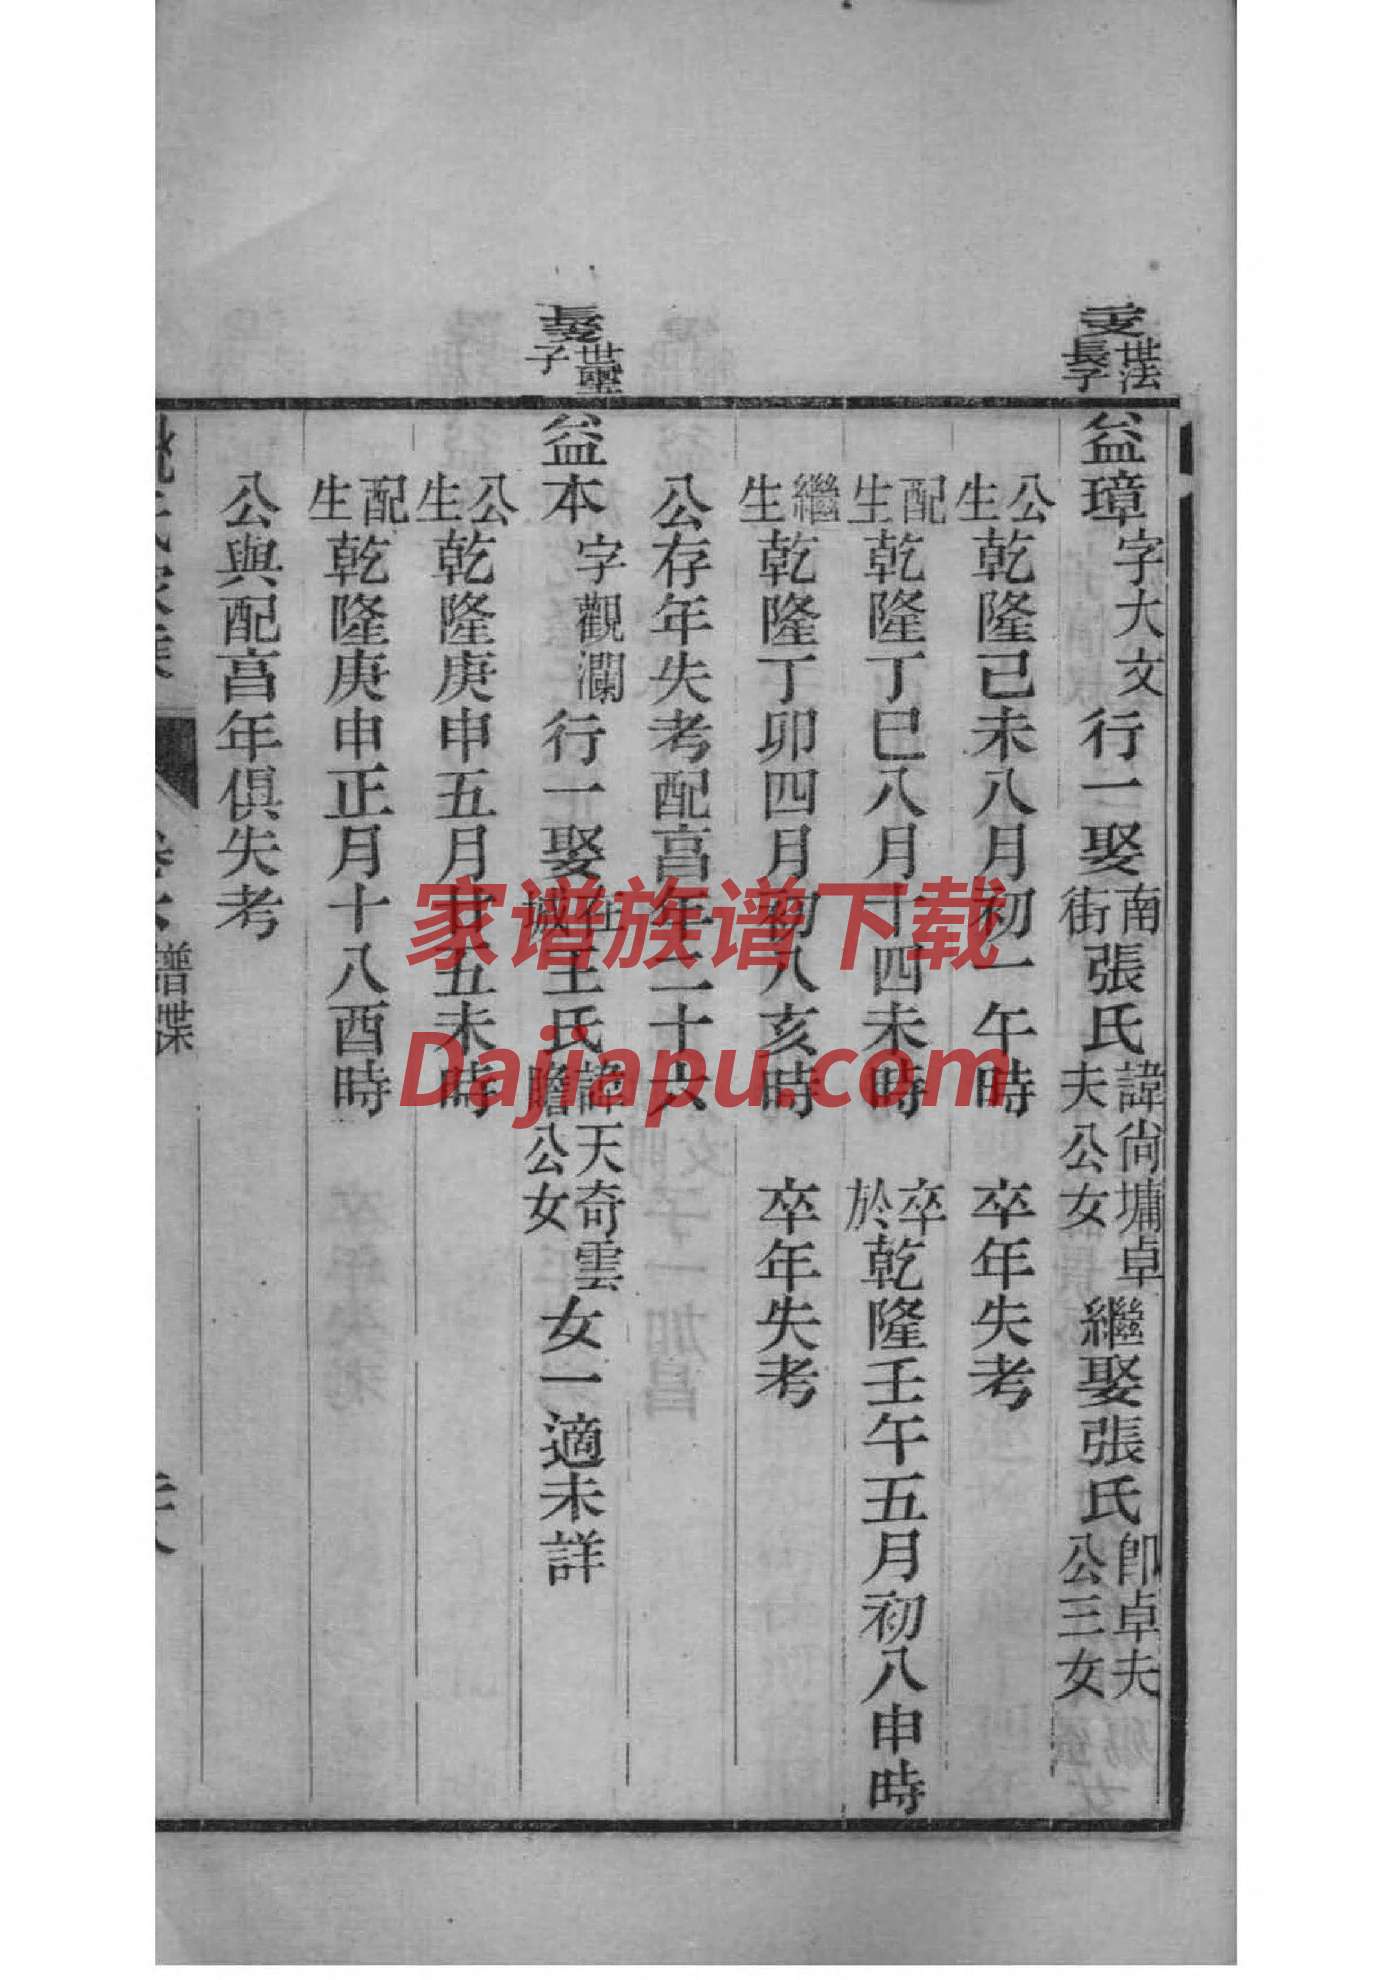 世法
長子
益璋字大文行一娶南街張氏諱尙墉卓夫公女繼娶張氏卽卓夫公三女
公生乾隆己未八月初一午時 卒年失考
配生乾隆丁巳八月十四未時 卒於乾隆壬午五月初八申時
繼生乾隆丁卯四月初八亥時 卒年失考
公存年失考配亯年二十六
長
世璽
子
益本字觀瀾行一娶在城王氏諱天奇雲瞻公女女一適未詳
公生乾隆庚申五月廿五未時
配生乾隆庚申正月十八酉時
公與配亯年俱失考
譜牒
家谱族谱下载
Dajiapu.com